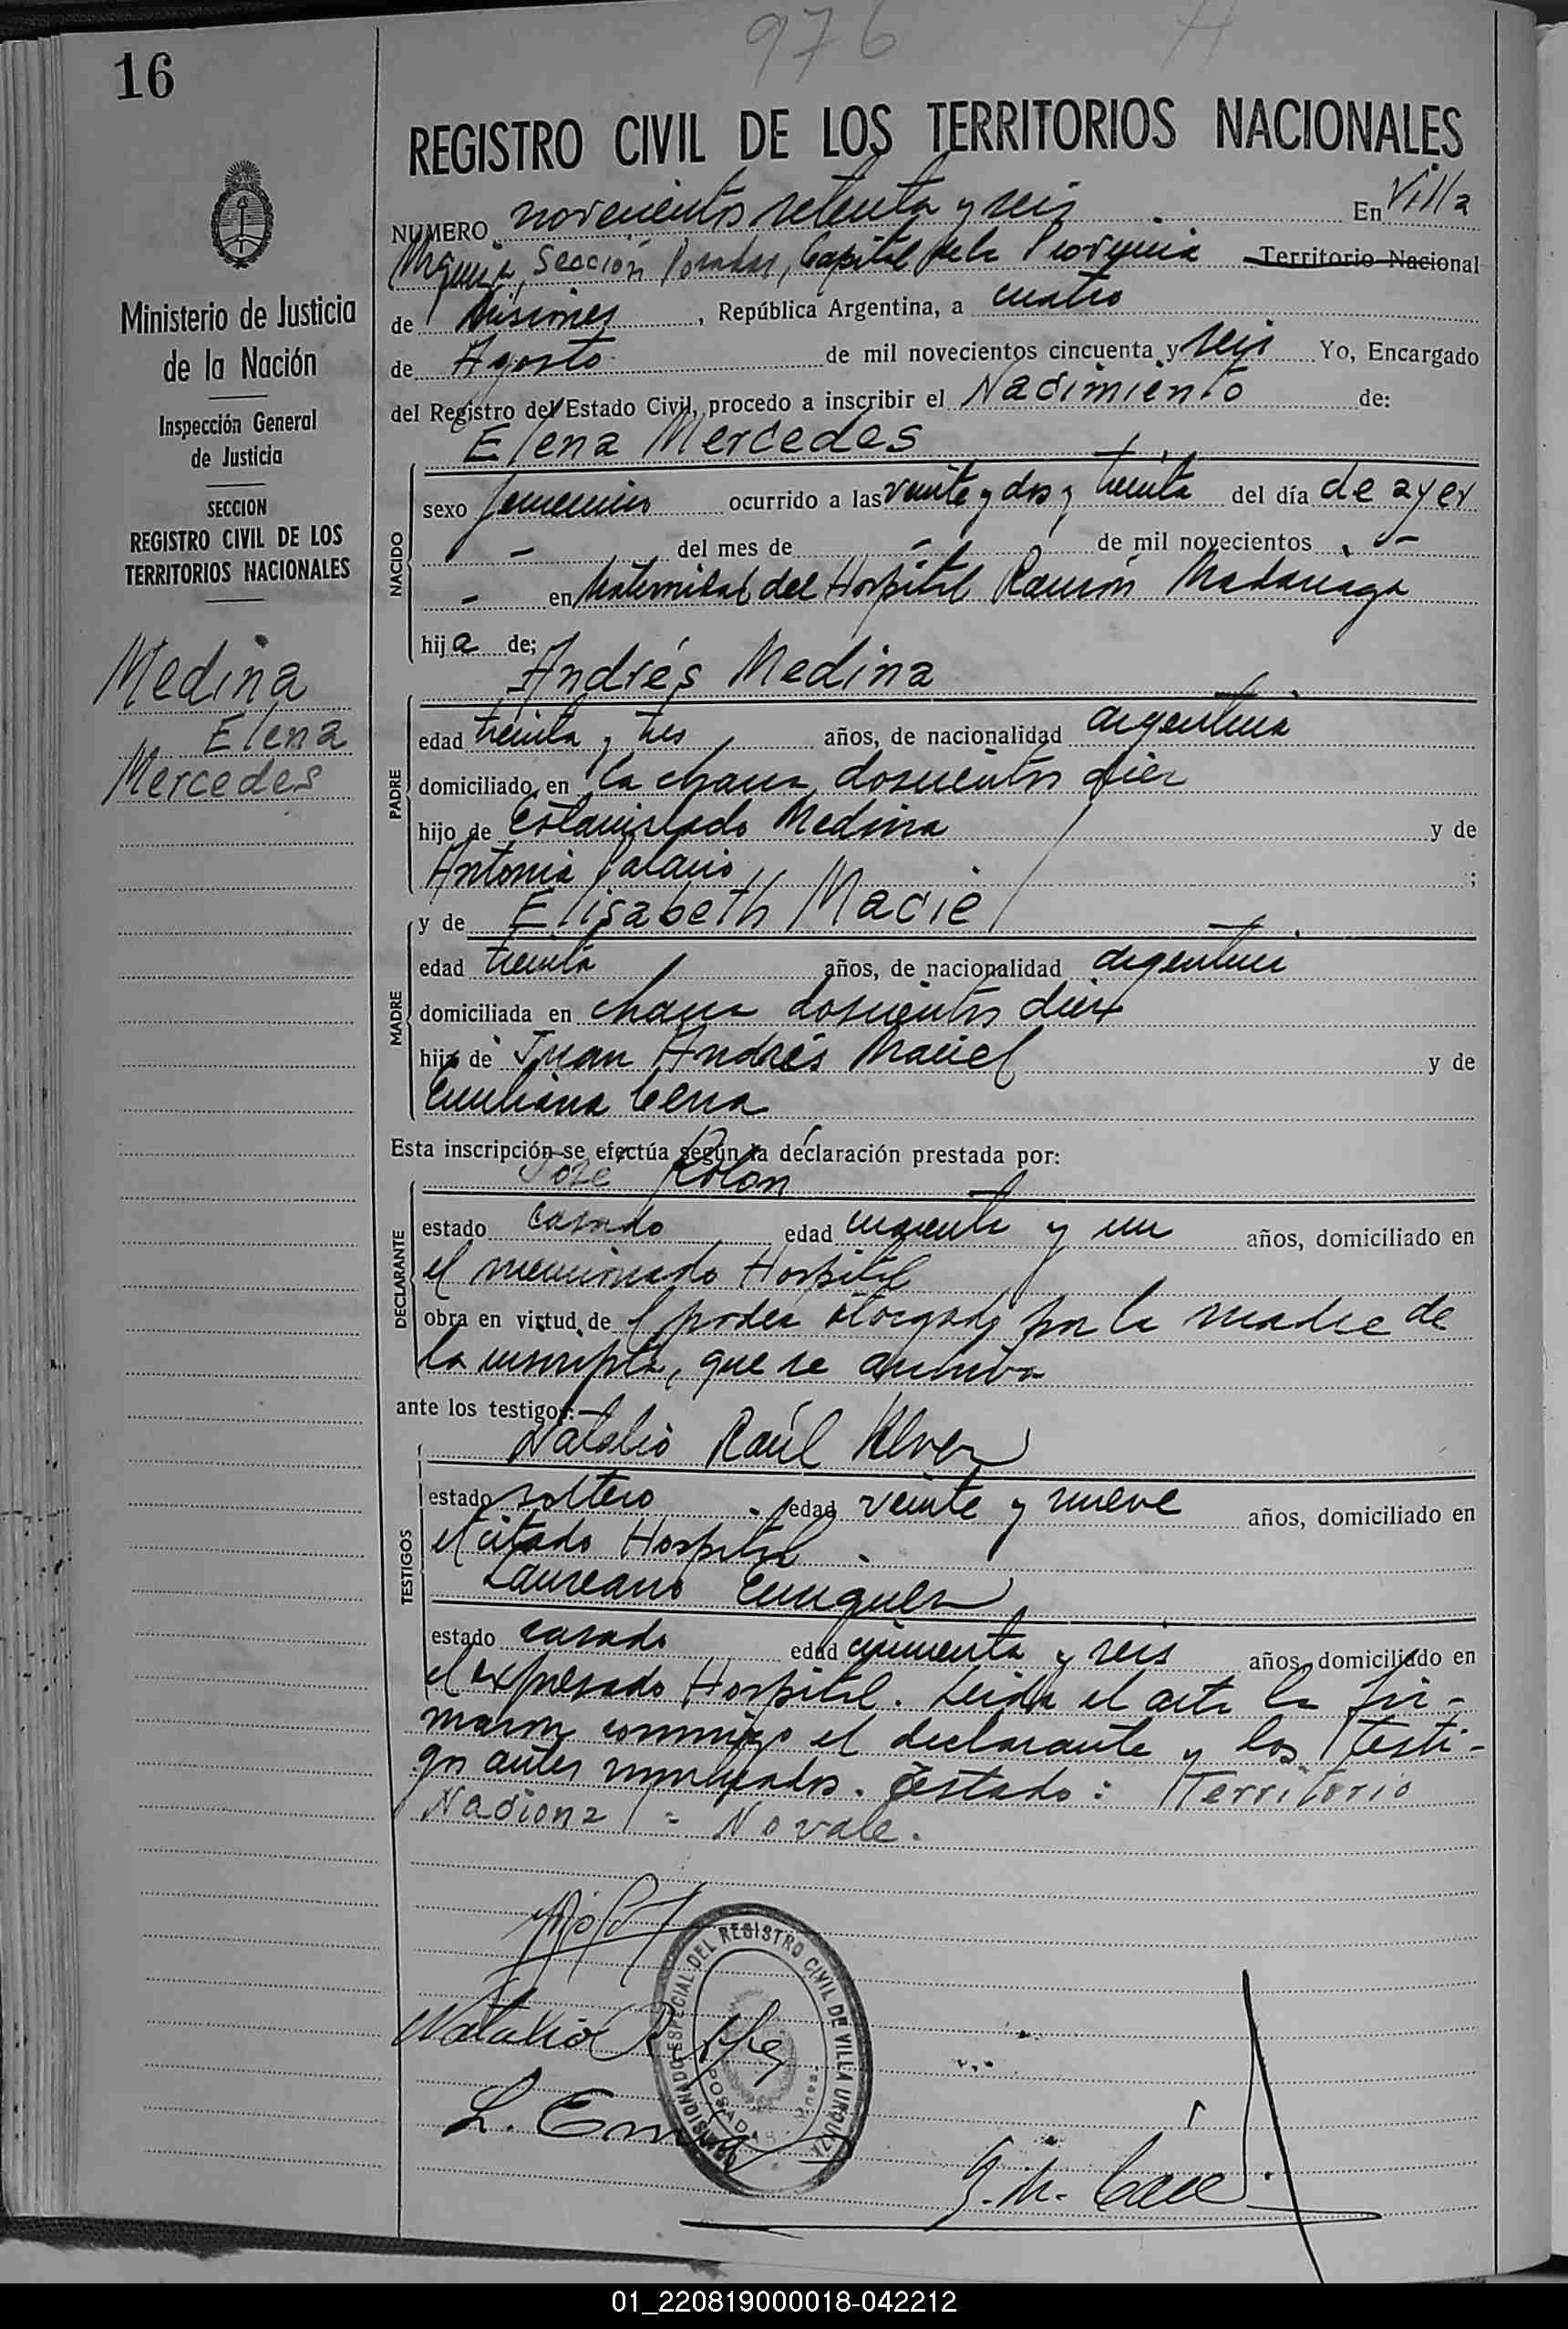 976
16
REGISTRO CIVIL DE LOS TERRITORIOS NACIONALES
NUMERO novecientos setenta y seis En Villa
Urquiza, Sección Posadas, Capital de la Provincia Territorio Nacional
de Misiones, República Argentina, a cuatro
de Agosto de mil novecientos cincuenta y seis Yo, Encargado
del Registro del Estado Civil, procedo a inscribir el Nacimiento de:
Elena Mercedes
NACIDO
sexo femenino ocurrido a las veinte y dos y treinta del día de ayer
- del mes de - de mil novecientos -
- en Maternidad del Hospital Ramón Madariaga
hija de;
Andrés Medina
PADRE
edad treinta y tres años, de nacionalidad argentina
domiciliado en la chacra doscientos diez
hijo de Estanislado Medina y de
Antonia ;
y de Elisabeth Maciel
MADRE
edad treinta años, de nacionalidad argentina
domiciliada en chacra doscientos diez
hija de Juan Andrés Maciel y de
Emiliana
Esta inscripción se efectúa según la declaración prestada por:
José Rolon
DECLARANTE
estado casado edad cuarenta y un años, domiciliado en
el mencionado Hospital
obra en virtud de el poder otorgado por la madre de
la inscripta, que se archiva
ante los testigos:
Natalio Raúl
TESTIGOS
estado soltero edad veinte y nueve años, domiciliado en
el citado Hospital
Laureano
estado casado edad cincuenta y seis años, domiciliado en
el expresado Hospital. Leida el acta la fir-
maron conmigo el declarante y los testi-
gos antes nombrados. Testado: Territorio
Nacional = No vale.
Natalio R.
L.
COMISIONADO ESPECIAL DEL REGISTRO CIVIL DE VILLA URQUIZA
POSADAS
Ministerio de Justicia
de la Nación
Inspección General
de Justicia
SECCION
REGISTRO CIVIL DE LOS
TERRITORIOS NACIONALES
Medina
Elena
Mercedes
01_220819000018-042212